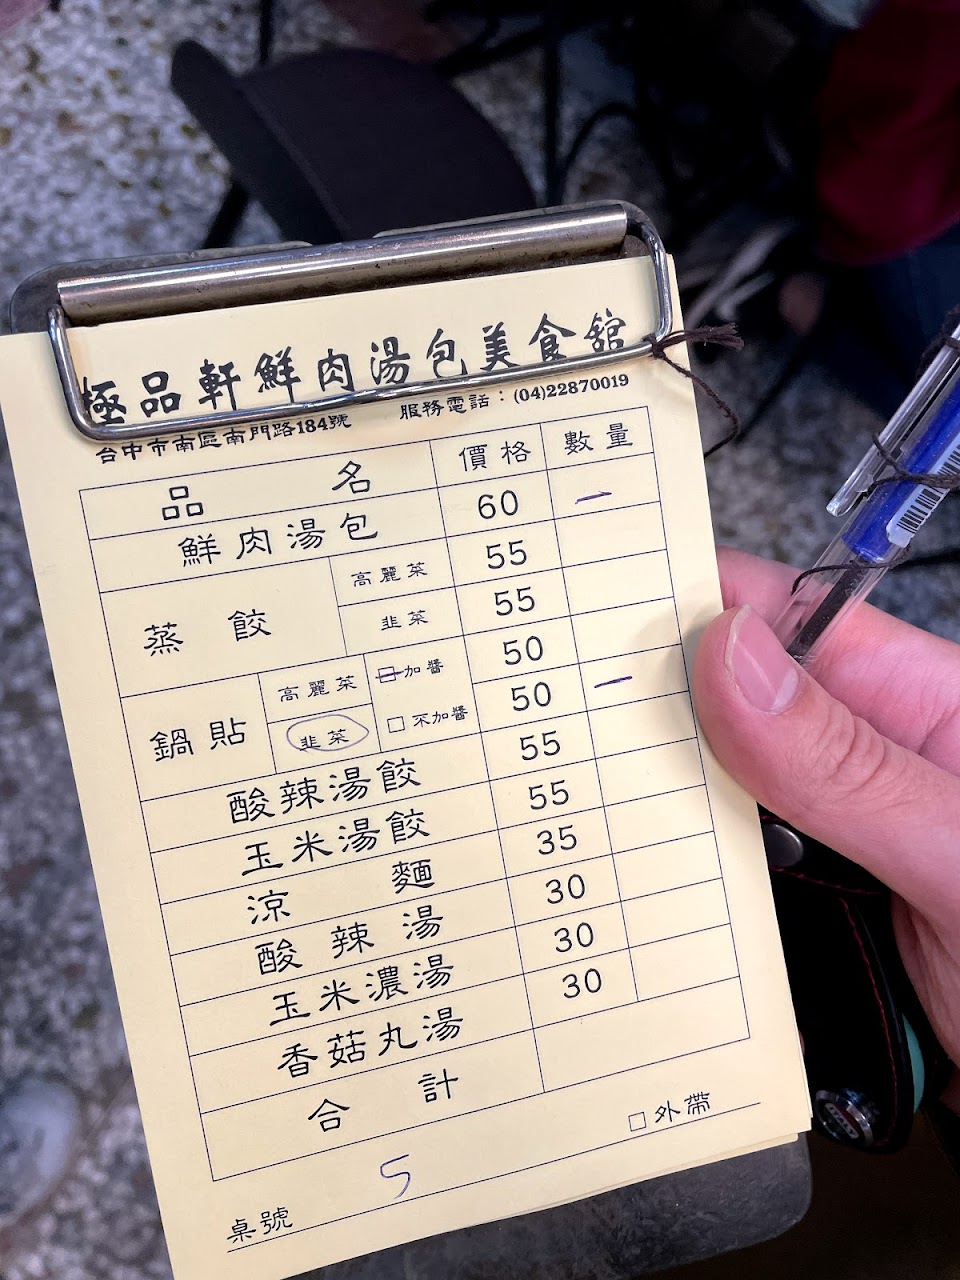 極品軒鮮肉湯包美食舘
台中市南區南門路184號 服務電話：(04)22870019
品名 價格 數量
鮮肉湯包 60 一
蒸餃 高麗菜 55
韭菜 55
鍋貼 高麗菜 □加醬 50
韭菜 □不加醬 50 一
酸辣湯餃 55
玉米湯餃 55
涼麵 35
酸辣湯 30
玉米濃湯 30
香菇丸湯 30
合計
□外帶
桌號 5